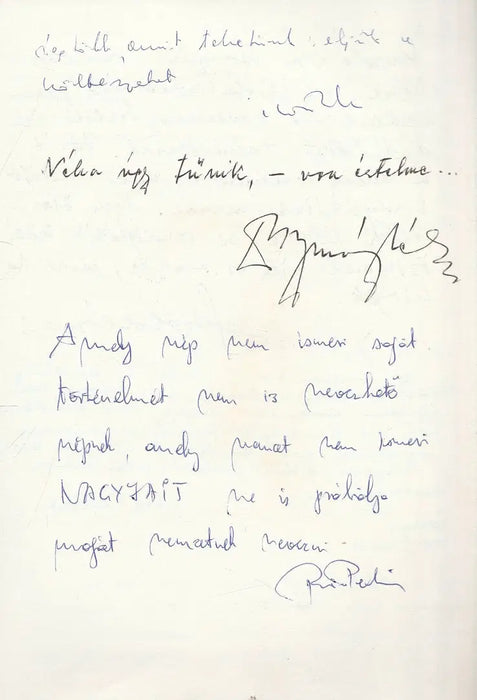 amit tehetünk :
költészetet
Néha úgy tűnik, – van értelme...
Amely nép nem ismeri saját
történelmét nem is nevezhető
népnek, amely nemzet nem ismeri
NAGYJAIT ne is próbálja
magát nemzetnek nevezni.